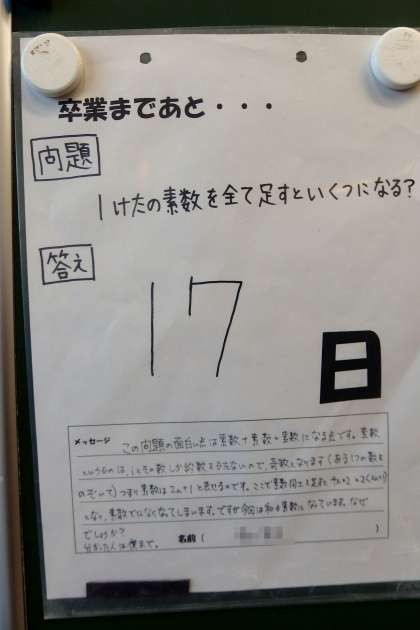 卒業まであと・・・
問題
1けたの素数を全て足すといくつになる?
答え
17
日
メッセージ この問題の面白い点は素数+素数=素数になる点です。素数
というのは、1とその数しか約数をもたないので、奇数となります(ある1つの数を
のぞいて)つまり素数は2n+1と表せるのです。ここで素数同士を足すと
となり、素数ではなくなってしまいます。ですが今回は和が素数になっています。なぜ
でしょうか?
分かった人は僕まで。 名前( )